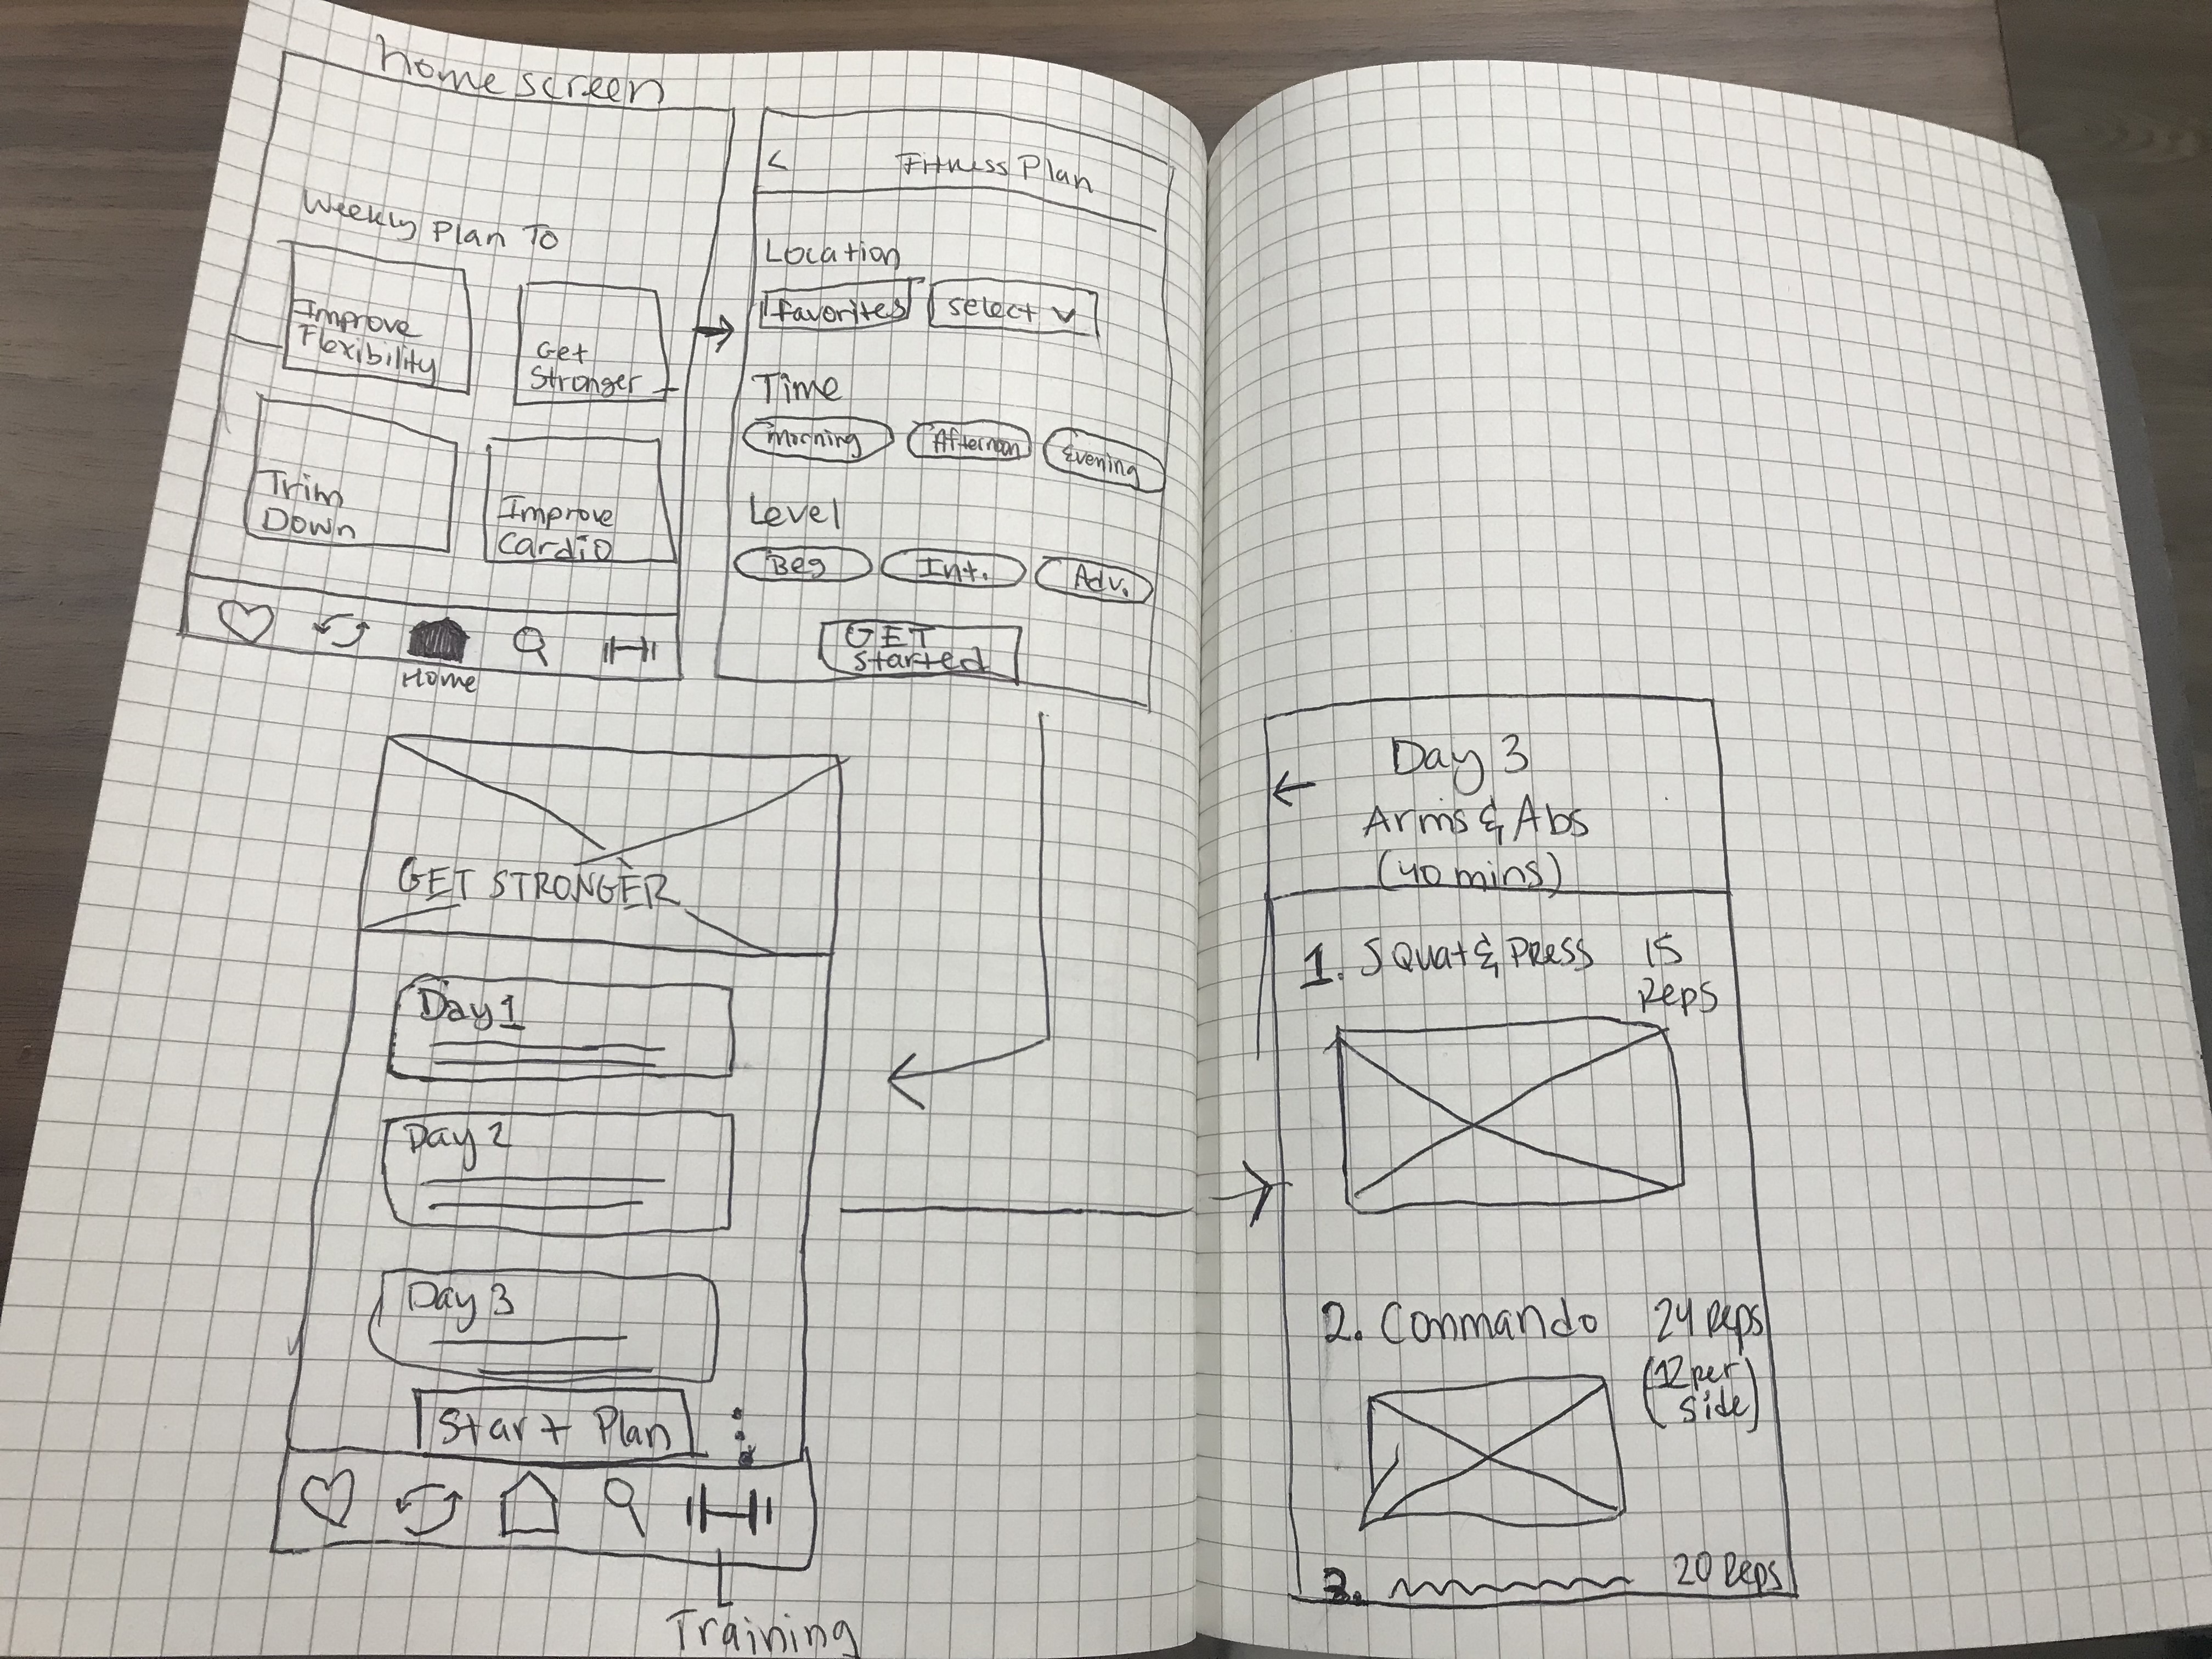 home screen
Weekly Plan To
Improve
Flexibility
Get
Stronger
Trim
Down
Improve
Cardio
Home
< Fitness Plan
Location
favorites select
Time
Morning Afternoon Evening
Level
Beg Int. Adv.
GET
started
GET STRONGER
Day 1
Day 2
Day 3
Start Plan
Training
Day 3
Arms & Abs
(40 mins)
1. Squat & Press 15
Reps
2. Commando 24 Reps
(12 per
side)
3. 20 Reps